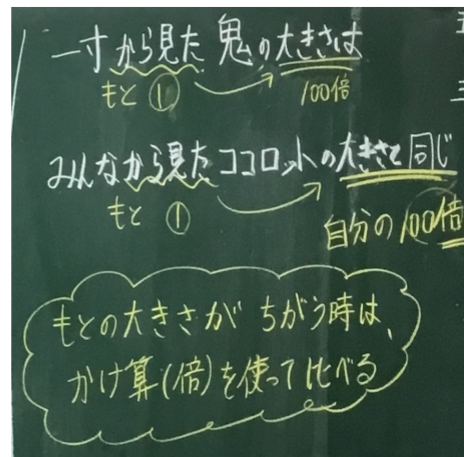 一寸から見た鬼の大きさは
もと① 100倍
みんなから見たココロットの大きさと同じ
もと①
自分の100倍
もとの大きさが ちがう時は、
かけ算(倍)を使って比べる